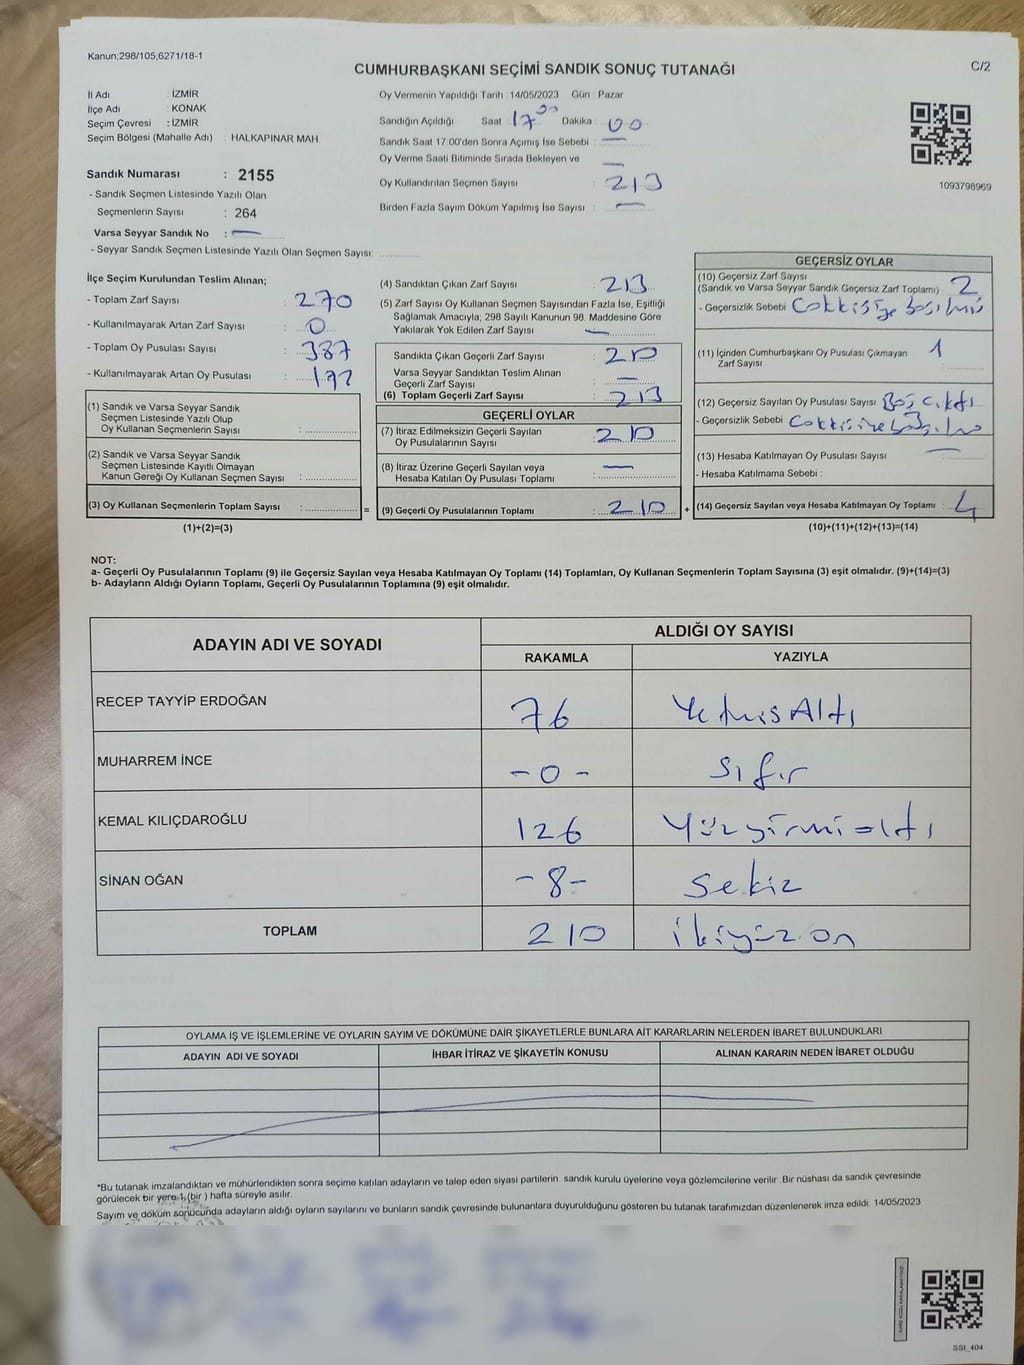 Kanun;298/105,6271/18-1
CUMHURBAŞKANI SEÇİMİ SANDIK SONUÇ TUTANAĞI
C/2
İl Adı : İZMİR
İlçe Adı : KONAK
Seçim Çevresi : İZMİR
Seçim Bölgesi (Mahalle Adı) : HALKAPINAR MAH.
Sandık Numarası : 2155
- Sandık Seçmen Listesinde Yazılı Olan
Seçmenlerin Sayısı : 264
Varsa Seyyar Sandık No : —
- Seyyar Sandık Seçmen Listesinde Yazılı Olan Seçmen Sayısı:
Oy Vermenin Yapıldığı Tarih : 14/05/2023 Gün : Pazar
Sandığın Açıldığı Saat 17 00 Dakika : 00
Sandık Saat 17:00'den Sonra Açımış İse Sebebi : —
Oy Verme Saati Bitiminde Sırada Bekleyen ve —
Oy Kullandırılan Seçmen Sayısı : 213
Birden Fazla Sayım Döküm Yapılmış İse Sayısı : —
1093798969
İlçe Seçim Kurulundan Teslim Alınan;
- Toplam Zarf Sayısı : 270
- Kullanılmayarak Artan Zarf Sayısı : 0
- Toplam Oy Pusulası Sayısı : 387
- Kullanılmayarak Artan Oy Pusulası :
(1) Sandık ve Varsa Seyyar Sandık
Seçmen Listesinde Yazılı Olup
Oy Kullanan Seçmenlerin Sayısı :
(2) Sandık ve Varsa Seyyar Sandık
Seçmen Listesinde Kayıtlı Olmayan
Kanun Gereği Oy Kullanan Seçmen Sayısı :
(3) Oy Kullanan Seçmenlerin Toplam Sayısı : =
(1)+(2)=(3)
(4) Sandıktan Çıkan Zarf Sayısı : 213
(5) Zarf Sayısı Oy Kullanan Seçmen Sayısından Fazla İse, Eşitliği
Sağlamak Amacıyla; 298 Sayılı Kanunun 98. Maddesine Göre
Yakılarak Yok Edilen Zarf Sayısı : —
Sandıkta Çıkan Geçerli Zarf Sayısı : 210
Varsa Seyyar Sandıktan Teslim Alınan
Geçerli Zarf Sayısı : —
(6) Toplam Geçerli Zarf Sayısı : 213
GEÇERLİ OYLAR
(7) İtiraz Edilmeksizin Geçerli Sayılan
Oy Pusulalarının Sayısı : 210
(8) İtiraz Üzerine Geçerli Sayılan veya
Hesaba Katılan Oy Pusulası Toplamı : —
(9) Geçerli Oy Pusulalarının Toplamı : 210 +
GEÇERSİZ OYLAR
(10) Geçersiz Zarf Sayısı
(Sandık ve Varsa Seyyar Sandık Geçersiz Zarf Toplamı) : 2
- Geçersizlik Sebebi :
(11) İçinden Cumhurbaşkanı Oy Pusulası Çıkmayan
Zarf Sayısı : 1
(12) Geçersiz Sayılan Oy Pusulası Sayısı : Boş çıktı
- Geçersizlik Sebebi :
(13) Hesaba Katılmayan Oy Pusulası Sayısı : —
- Hesaba Katılmama Sebebi :
(14) Geçersiz Sayılan veya Hesaba Katılmayan Oy Toplamı : 4
(10)+(11)+(12)+(13)=(14)
NOT:
a- Geçerli Oy Pusulalarının Toplamı (9) ile Geçersiz Sayılan veya Hesaba Katılmayan Oy Toplamı (14) Toplamları, Oy Kullanan Seçmenlerin Toplam Sayısına (3) eşit olmalıdır. (9)+(14)=(3)
b- Adayların Aldığı Oyların Toplamı, Geçerli Oy Pusulalarının Toplamına (9) eşit olmalıdır.
ADAYIN ADI VE SOYADI ALDIĞI OY SAYISI
RAKAMLA YAZIYLA
RECEP TAYYİP ERDOĞAN 76 Yetmiş Altı
MUHARREM İNCE - 0 - Sıfır
KEMAL KILIÇDAROĞLU 126 Yüzyirmi altı
SİNAN OĞAN - 8 - Sekiz
TOPLAM 210 ikiyüz on
OYLAMA İŞ VE İŞLEMLERİNE VE OYLARIN SAYIM VE DÖKÜMÜNE DAİR ŞİKAYETLERLE BUNLARA AİT KARARLARIN NELERDEN İBARET BULUNDUKLARI
ADAYIN ADI VE SOYADI İHBAR İTİRAZ VE ŞİKAYETİN KONUSU ALINAN KARARIN NEDEN İBARET OLDUĞU
*Bu tutanak imzalandıktan ve mühürlendikten sonra seçime katılan adayların ve talep eden siyasi partilerin sandık kurulu üyelerine veya gözlemcilerine verilir. Bir nüshası da sandık çevresinde
görülecek bir yere 1 (bir ) hafta süreyle asılır.
Sayım ve döküm sonucunda adayların aldığı oyların sayılarını ve bunların sandık çevresinde bulunanlara duyurulduğunu gösteren bu tutanak tarafımızdan düzenlenerek imza edildi. 14/05/2023
KARE KODU KARALAMAYINIZ!
SSI_404